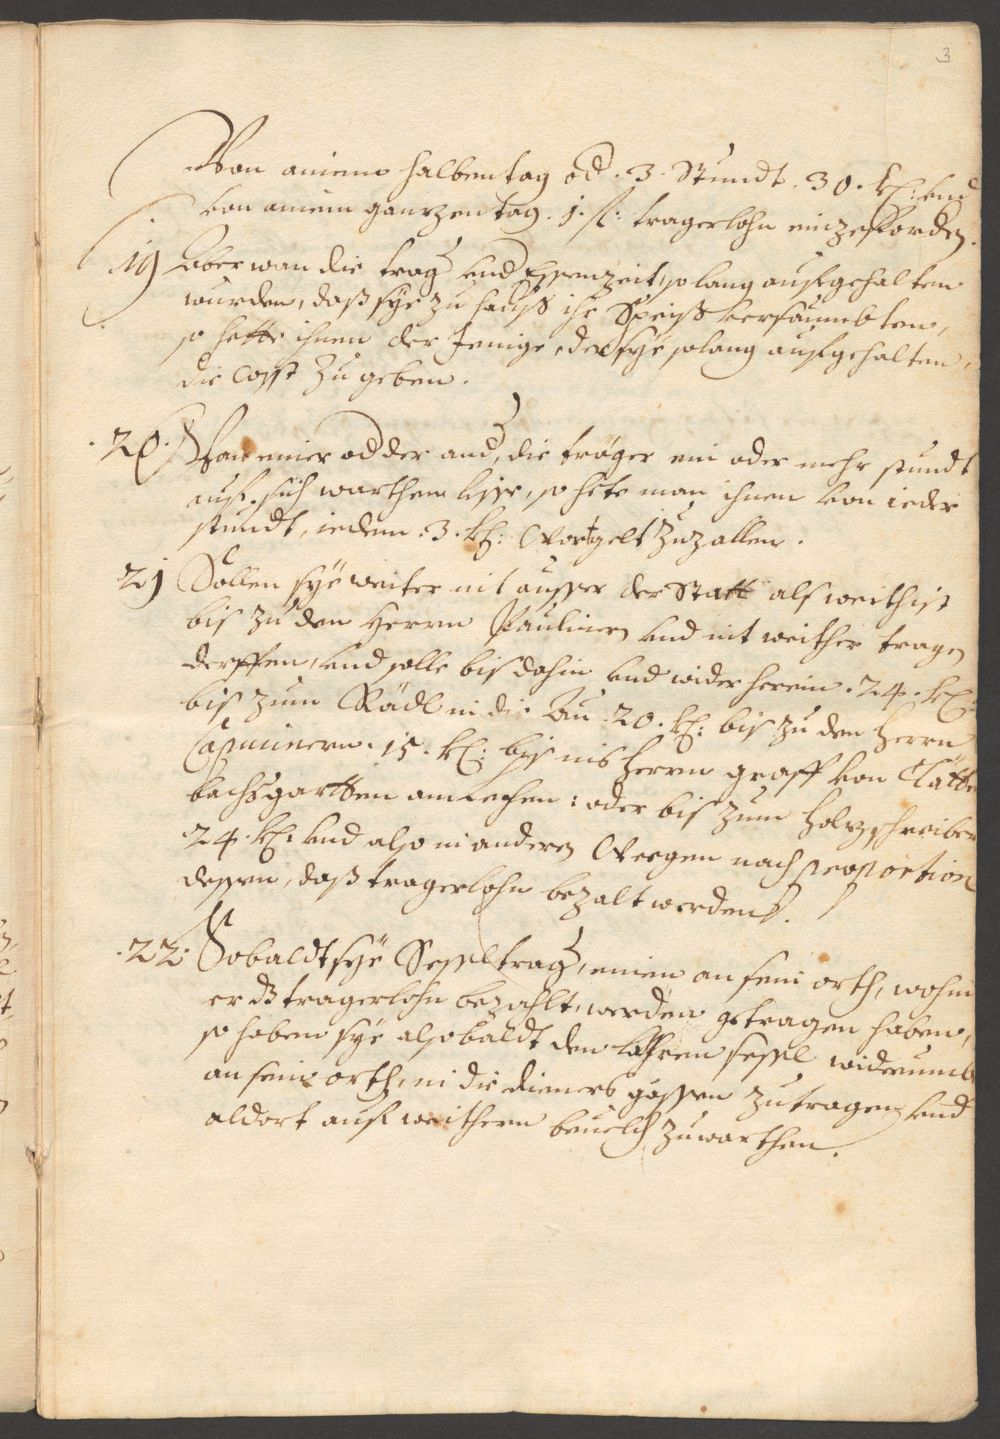 3
Von ainem halben tag od. 3. Stundt. 30. kr: vnd
von ainem ganzen tag. 1. fl: tragerlohn einzefordern.
19 aber wan die trager vmb Essenzeit, so lang aufgehalten
wurden, daß sye zu hauß ihr Speiß versäumbten,
so hette ihnen der Jenige, der sye solang aufgehalten,
die Cosst zu geben.
.20. Wan einer od der and, die träger ein oder mehr stundt
auf sich warthen liesse, so hete man ihnen von ieder
stundt, iedem .3. kr: Wartgelt zuzallen.
21 Sollen sye weiter nit ausser der Statt als weith ist
bis zu den Herrn Paulinern vnd nit weither tragen
derffen, vnd solle bis dahin vnd wider herein .24. kr:
bis zum Rädl in die Au .20. kr: bis zu den Herrn
Capucinern .15. kr: bis ins Herrn graff von
bachsgartten am Lechen: oder bis zum Holzschreiber
24. kr: vnd also in anderen Weegen nach proportion
dessen, daß tragerlohn bezalt werden.
.22. Sobaldt sye Sessltrager, einen an sein orth, wohin
er dz tragerlohn bezahlt, werden getragen haben,
so haben sye alsobaldt den lähren sessl widerumb
an sein orth, in die dieners gassen zutragen, vnd
aldort auf weithern beuelch zuwarthen.